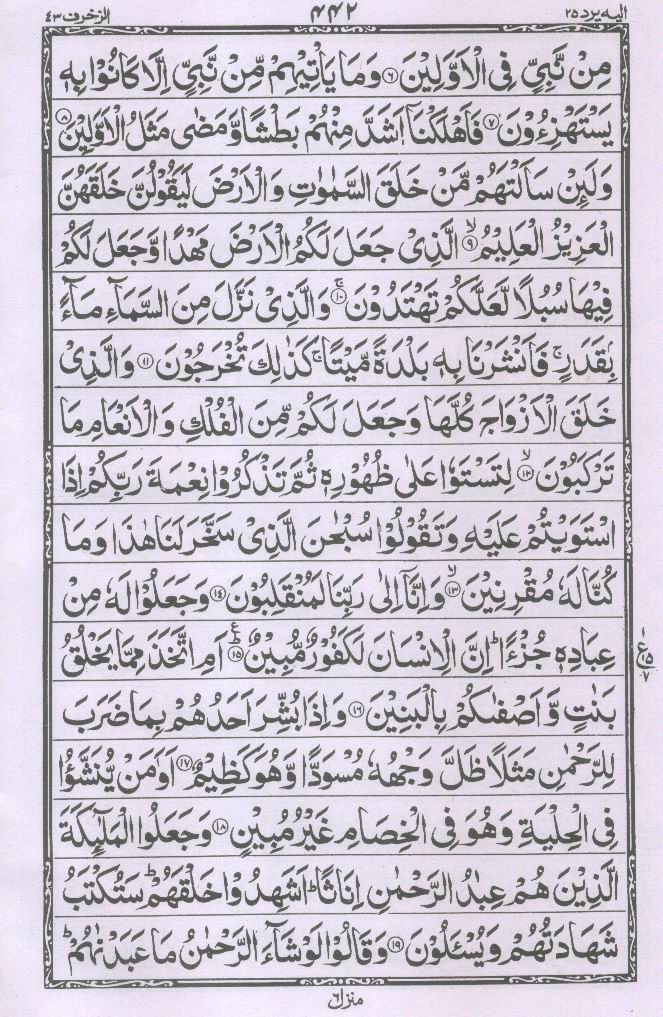 الیه یرد ۲۵
۴۴۲
الزخرف ۴۳
مِنْ نَّبِیٍّ فِی الْاَوَّلِیْنَ ۶ وَمَا یَاْتِیْهِمْ مِّنْ نَّبِیٍّ اِلَّا کَانُوْا بِهٖ
یَسْتَهْزِءُوْنَ ۷ فَاَهْلَکْنَاۤ اَشَدَّ مِنْهُمْ بَطْشًا وَّمَضٰی مَثَلُ الْاَوَّلِیْنَ ۸
وَلَئِنْ سَاَلْتَهُمْ مَّنْ خَلَقَ السَّمٰوٰتِ وَالْاَرْضَ لَیَقُوْلُنَّ خَلَقَهُنَّ
الْعَزِیْزُ الْعَلِیْمُ ۙ۹ الَّذِیْ جَعَلَ لَکُمُ الْاَرْضَ مَهْدًا وَّجَعَلَ لَکُمْ
فِیْهَا سُبُلًا لَّعَلَّکُمْ تَهْتَدُوْنَ ۚ۱۰ وَالَّذِیْ نَزَّلَ مِنَ السَّمَآءِ مَآءًۢ
بِقَدَرٍ ۚ فَاَنْشَرْنَا بِهٖ بَلْدَةً مَّیْتًا ۚ کَذٰلِكَ تُخْرَجُوْنَ ۱۱ وَالَّذِیْ
خَلَقَ الْاَزْوَاجَ کُلَّهَا وَجَعَلَ لَکُمْ مِّنَ الْفُلْكِ وَالْاَنْعَامِ مَا
تَرْکَبُوْنَ ۙ۱۲ لِتَسْتَوٗا عَلٰی ظُهُوْرِهٖ ثُمَّ تَذْکُرُوْا نِعْمَةَ رَبِّکُمْ اِذَا
اسْتَوَیْتُمْ عَلَیْهِ وَتَقُوْلُوْا سُبْحٰنَ الَّذِیْ سَخَّرَ لَنَا هٰذَا وَمَا
کُنَّا لَهٗ مُقْرِنِیْنَ ۙ۱۳ وَاِنَّاۤ اِلٰی رَبِّنَا لَمُنْقَلِبُوْنَ ۱۴ وَجَعَلُوْا لَهٗ مِنْ
عِبَادِهٖ جُزْءًا ؕ اِنَّ الْاِنْسَانَ لَکَفُوْرٌ مُّبِیْنٌ ؕ۱۵ ع اَمِ اتَّخَذَ مِمَّا یَخْلُقُ
بَنٰتٍ وَّاَصْفٰىکُمْ بِالْبَنِیْنَ ۱۶ وَاِذَا بُشِّرَ اَحَدُهُمْ بِمَا ضَرَبَ
لِلرَّحْمٰنِ مَثَلًا ظَلَّ وَجْهُهٗ مُسْوَدًّا وَّهُوَ کَظِیْمٌ ۱۷ اَوَمَنْ یُّنَشَّؤُا
فِی الْحِلْیَةِ وَهُوَ فِی الْخِصَامِ غَیْرُ مُبِیْنٍ ۱۸ وَجَعَلُوا الْمَلٰٓئِکَةَ
الَّذِیْنَ هُمْ عِبٰدُ الرَّحْمٰنِ اِنَاثًا ؕ اَشَهِدُوْا خَلْقَهُمْ ؕ سَتُکْتَبُ
شَهَادَتُهُمْ وَیُسْئَلُوْنَ ۱۹ وَقَالُوْا لَوْ شَآءَ الرَّحْمٰنُ مَا عَبَدْنٰهُمْ ؕ
۱
ع ۱۵
۷
منزل ۶